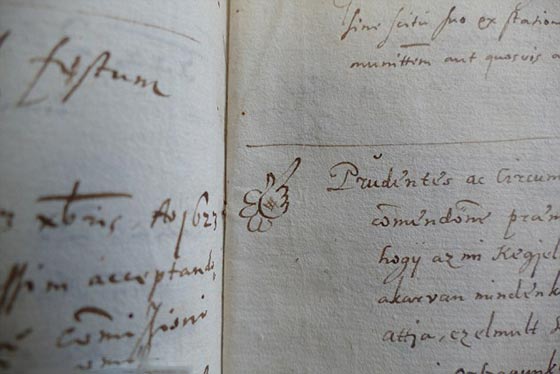 festum
xbris, Ao 1623
ssim acceptand,
com̄issioni
sine scitu suo ex station
munitt̄em aut quosvis a
Prudentes ac Circum
com̄endōne pram
hogÿ az mi Kegjel
akarvan mindenk
attia, ez elmult